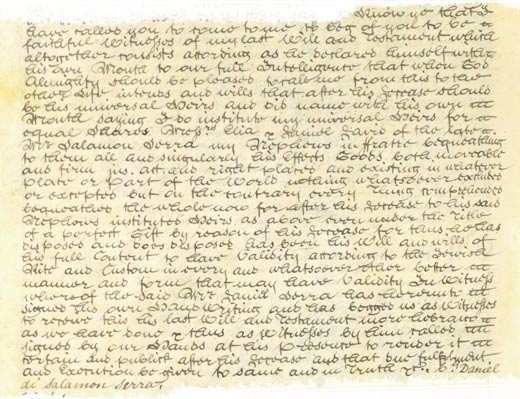 Know ye that I
have called you to come to me, to beg of you to be
faithful Witnesses of my last Will and Testament which
altogether consists according as he declared himself with
his own Mouth to our full Intelligence that when God
Almighty should be pleased to call me from this to the
other Life intends and wills that after his Decease should
be his universal Heirs and did name with his own
Mouth saying I do institute my universal Heirs for
equal Shares Messrs Elia & Daniel David of the late
Mr Salamon Serra my Nephews in fratre bequeathing
to them all and singularly his Effects Goods both moveable
and firm jus. act. and right placed and existing in whatever
place or Part of the World nothing whatsoever excluded
or excepted but on the contrary every Thing comprehended
bequeathes the whole now for after his Decease to his said
Nephews instituted Heirs as above even under the Title
of a perfect Gift by reason of his Decease for thus he has
disposed and does dispose has been his Will and wills of
his full Content to have Validity according to the Jewish
Rite and Custom in every and whatsoever other better
manner and form that may have Validity In Witness
whereof the said Mr Daniel Serra has hereunto
signed his own Hand Writing and has begged us as Witnesses
to receive this his last Will and Testament more hebraico
as we have done & thus as Witnesses by him called
signed by our Hands at his Presence to render it
certain and publick after his Decease and that due fulfilment
and Execution be given to same and in Truth &c. Daniel
di Salamon Serra,